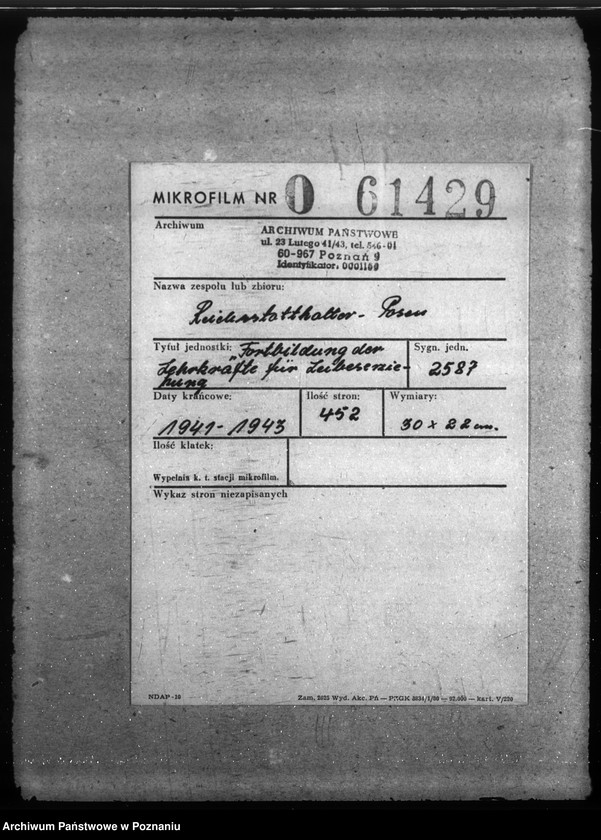 MIKROFILM NR 0 61429
Archiwum
ARCHIWUM PAŃSTWOWE
ul. 23 Lutego 41/43, tel. 546-01
60-967 Poznań 9
Identyfikator: 0001160
Nazwa zespołu lub zbioru:
Reichsstatthalter - Posen
Tytuł jednostki: "Fortbildung der
Lehrkräfte für Leibeserzie-
hung
Sygn. jedn.
2587
Daty krańcowe:
1941-1943
Ilość stron:
452
Wymiary:
30 x 22 cm.
Ilość klatek:
Wypełnia k. t. stacji mikrofilm.
Wykaz stron niezapisanych
NDAP-10
Zam. 2635 Wyd. Akc. Pń — PRGK kart. V/220
Archiwum Państwowe w Poznaniu